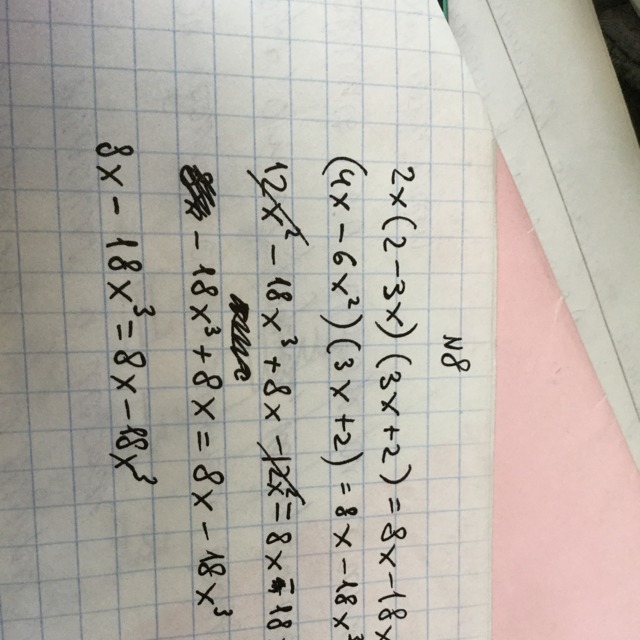 N8
2x(2-3x)(3x+2)=8x-18x
(4x-6x²)(3x+2)=8x-18x³
12x²-18x³+8x-12x²=8x-18
-18x³+8x=8x-18x³
8x-18x³=8x-18x³